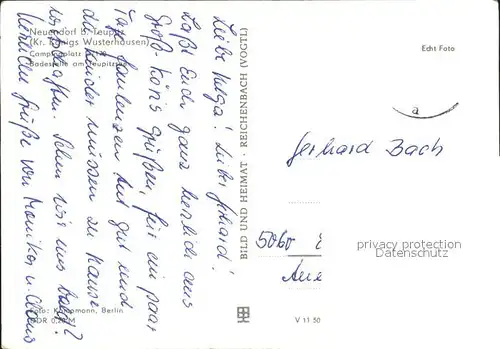 Neuendorf b. Teupitz
(Kr. Königs Wusterhausen)
Campingplatz
Badestelle am Teupitzsee
Liebe Helga! Lieber Gerhard!
Laßt Euch ganz herzlich aus
Groß-Köris grüßen, für ein paar
Tage faulenzen tut gut und
die Kinder müssen zu Hause
wirtschaften. Sehen wir uns bald?
Herzliche Grüße von Monika u. Claus
Foto: Kühnmann, Berlin
DDR
BILD UND HEIMAT · REICHENBACH (VOGTL)
V 11 50
Echt Foto
a
Gerhard Bach
5060
privacy protection
Datenschutz